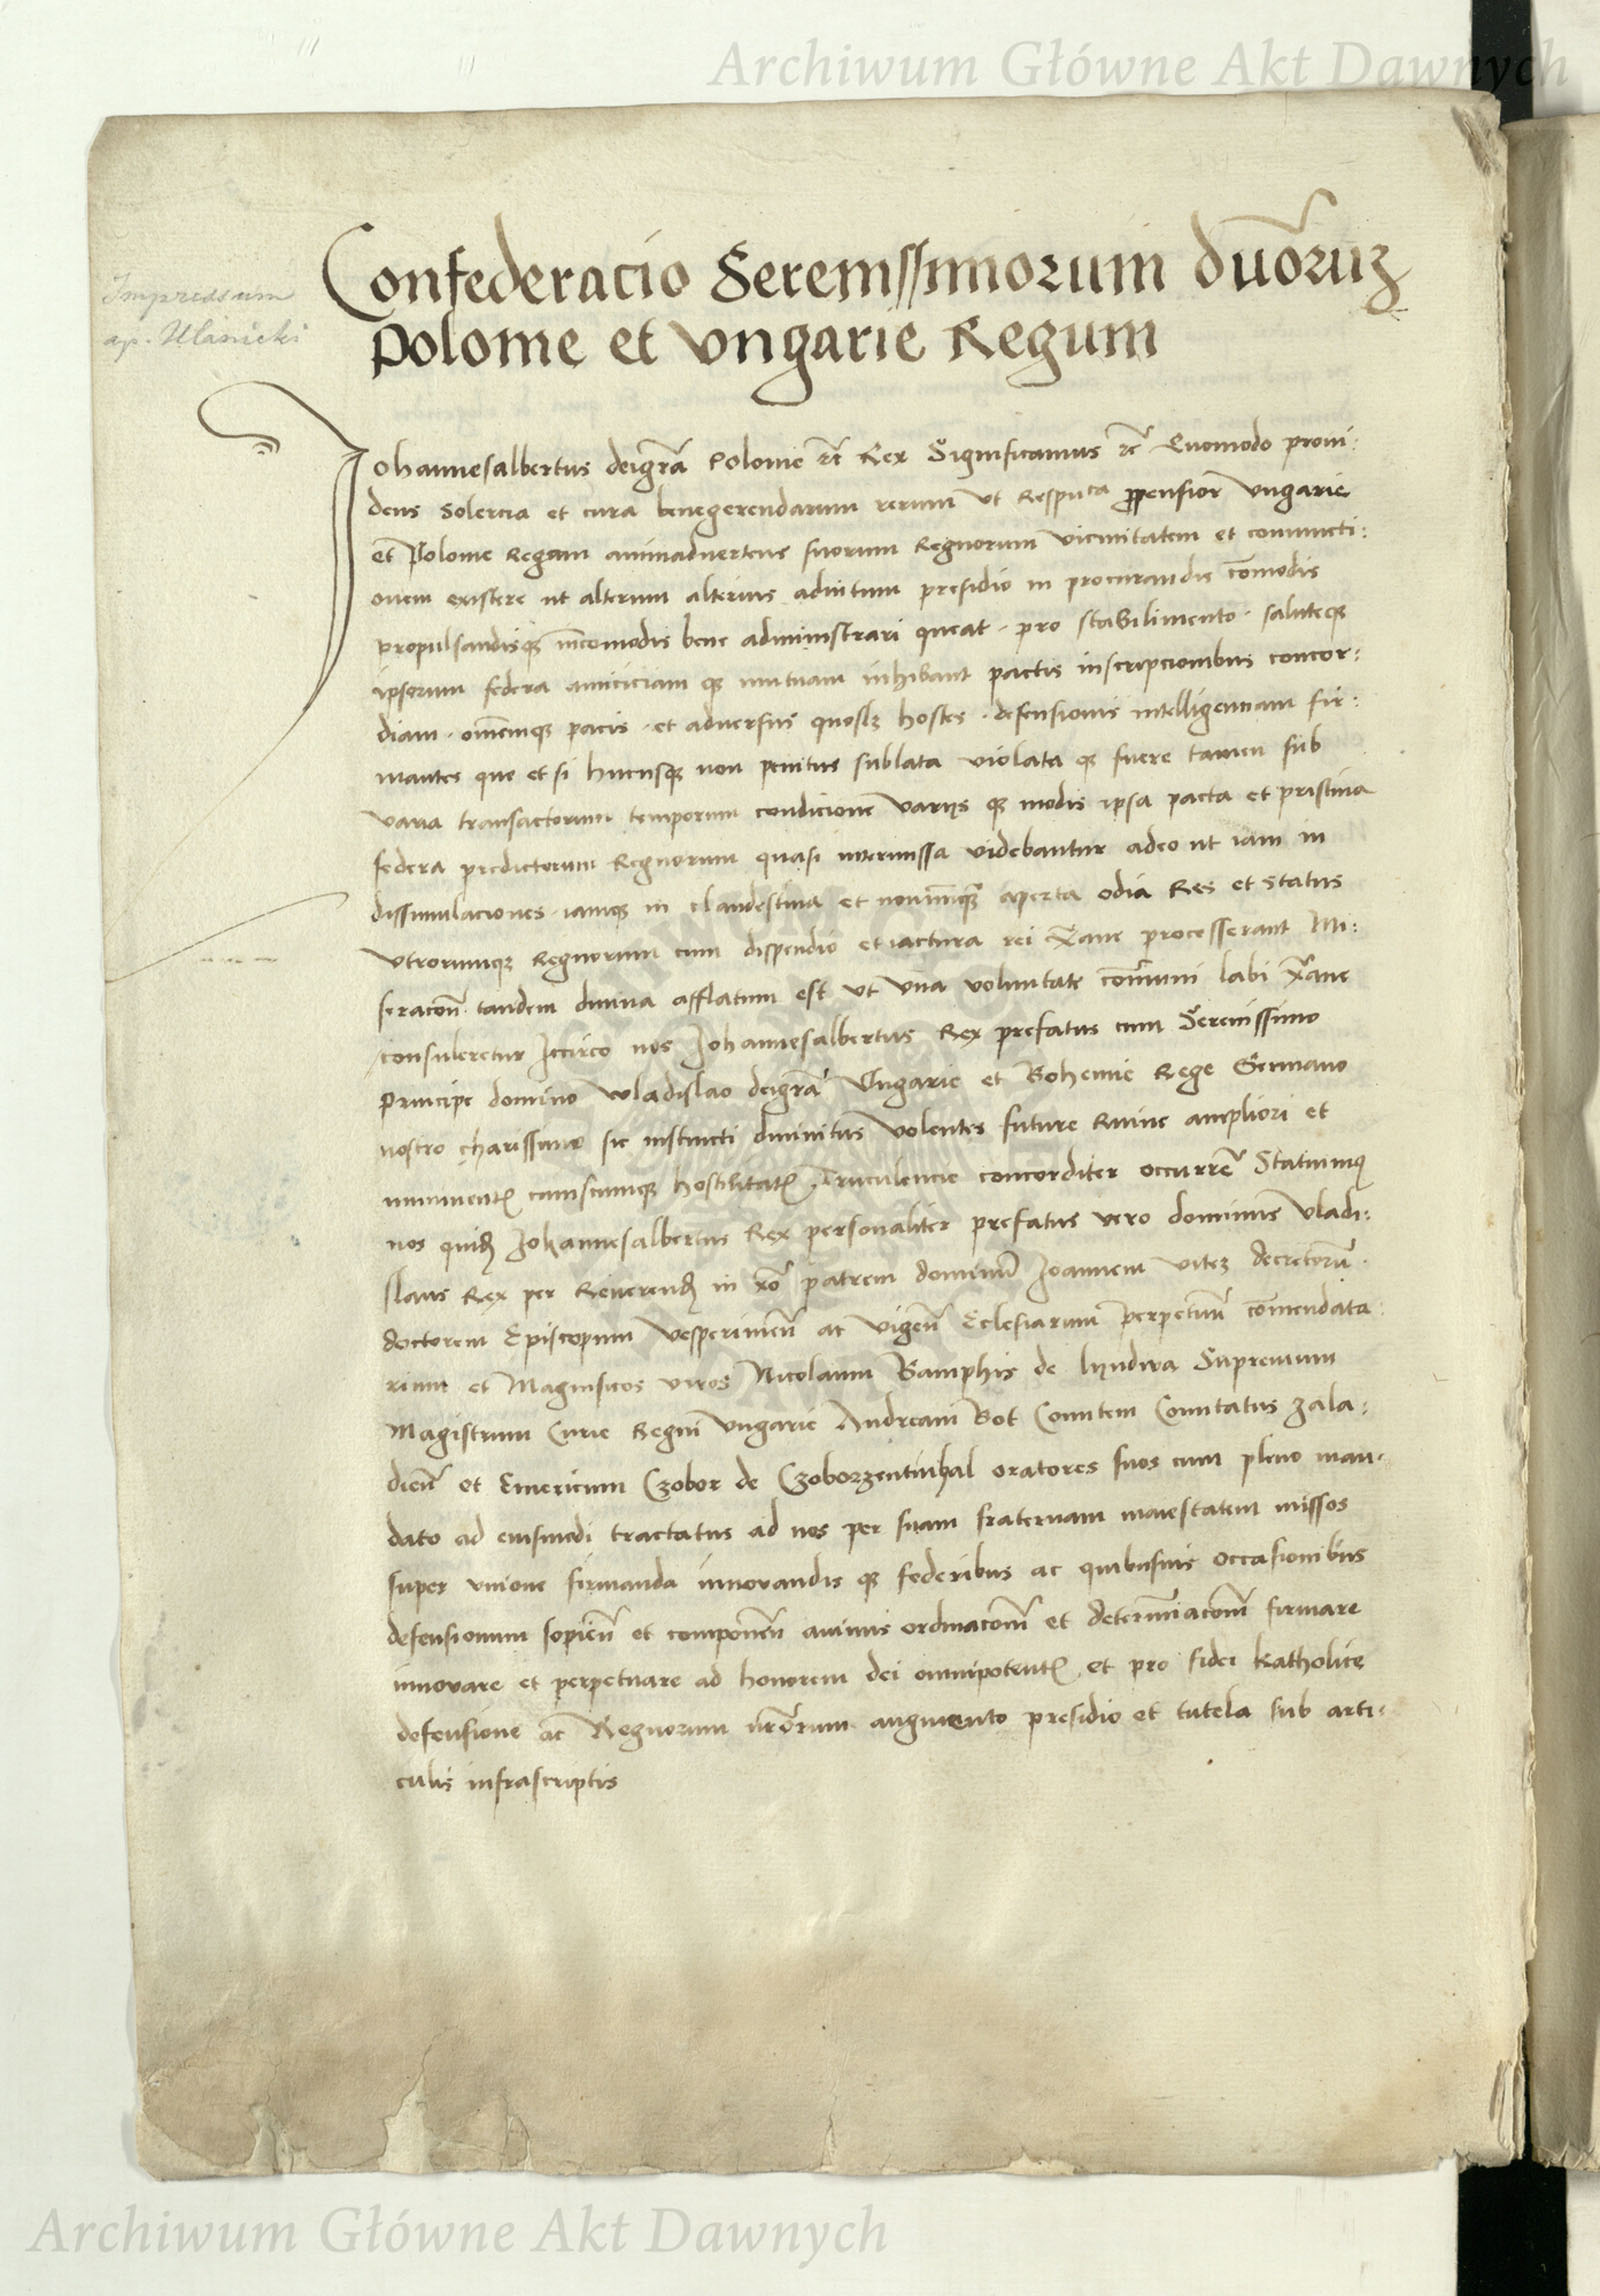 Archiwum Główne Akt Dawnych
Impressum
ap. Ulanicki
Confederacio Serenissimorum duorum
Polonie et Ungarie Regum
Johannesalbertus deigrã Polonie etc̃ Rex Significamus etc̃ Quomodo provi:
dens Solercia et cura benegerendarum rerum ut Respuca propensior Ungarie
et Polonie Regum animadvertens suorum Regnorum vicinitatem et coniuncti:
onem existere ut alterum alterius adiutum presidio in procurandis cõmodis
propulsandisq; incõmodis bene administrari queat. pro stabilimento. saluteq;
ipsorum federa amiciciam q; mutuam inhibant pactis inscripcionibus concor:
diam. omẽmq; pacis. et adversus quoslz hostes. defensionis intelligenciam fir:
mantes que et si hucusq; non penitus sublata violata q; fuere tamen sub
varia transactorum temporum condicione varijs q; modis ipsa pacta et pristina
federa predictorum Regnorum quasi intermissa videbantur adeo ut iam in
dissimulaciones. iamq; in clandestina et nonnũq; aperta odia Res et status
Utrorumq; Regnorum cum dispendio et iactura rei Xp̃ane processerant Mi:
seracoñ tandem divina afflatum est ut una voluntate cõmuni labi Xp̃ane
consuleretur Iccirco nos Johannesalbertus Rex prefatus cum Serenissimo
Principe domino Wladislao deigrã Ungarie et Bohemie Rege Germano
nostro charissimo sic instincti divinitus volentes future Ruine ampliori et
imminentis cuiuscumq; hostilitatis Truculencie concorditer occurrẽ Statuimus
nos quid; Johannesalbertus Rex personaliter prefatus vero dominus Vladi:
slaus Rex per Reverend; in xpõ patrem dominũ Joannem vitez decretorũ.
doctorem Episcopum Vesperimeñ ac vigeñ Eclesiarum perpetuũ cõmendata:
rium et Magnificos viros Nicolaum Bamphis de lyndwa Supremum
Magistrum Curie Regni Ungarie Andream Bot Comitem Comitatus zala:
dieñ et Emericum Czobor de Czoborzentmihal oratores suos cum pleno man:
dato ad eiusmodi tractatus ad nos per suam fraternam maiestatem missos
super unione firmanda innovandis q; federibus ac quibusuis occasionibus
defensionum sopieñ et componeñ animis ordinacoñ et determinacoñ firmare
innovare et perpetuare ad honorem dei omnipotentis et pro fidei katholice
defensione ac Regnorum nrõrum augmento presidio et tutela sub arti:
culis infrascriptis
Archiwum Główne Akt Dawnych